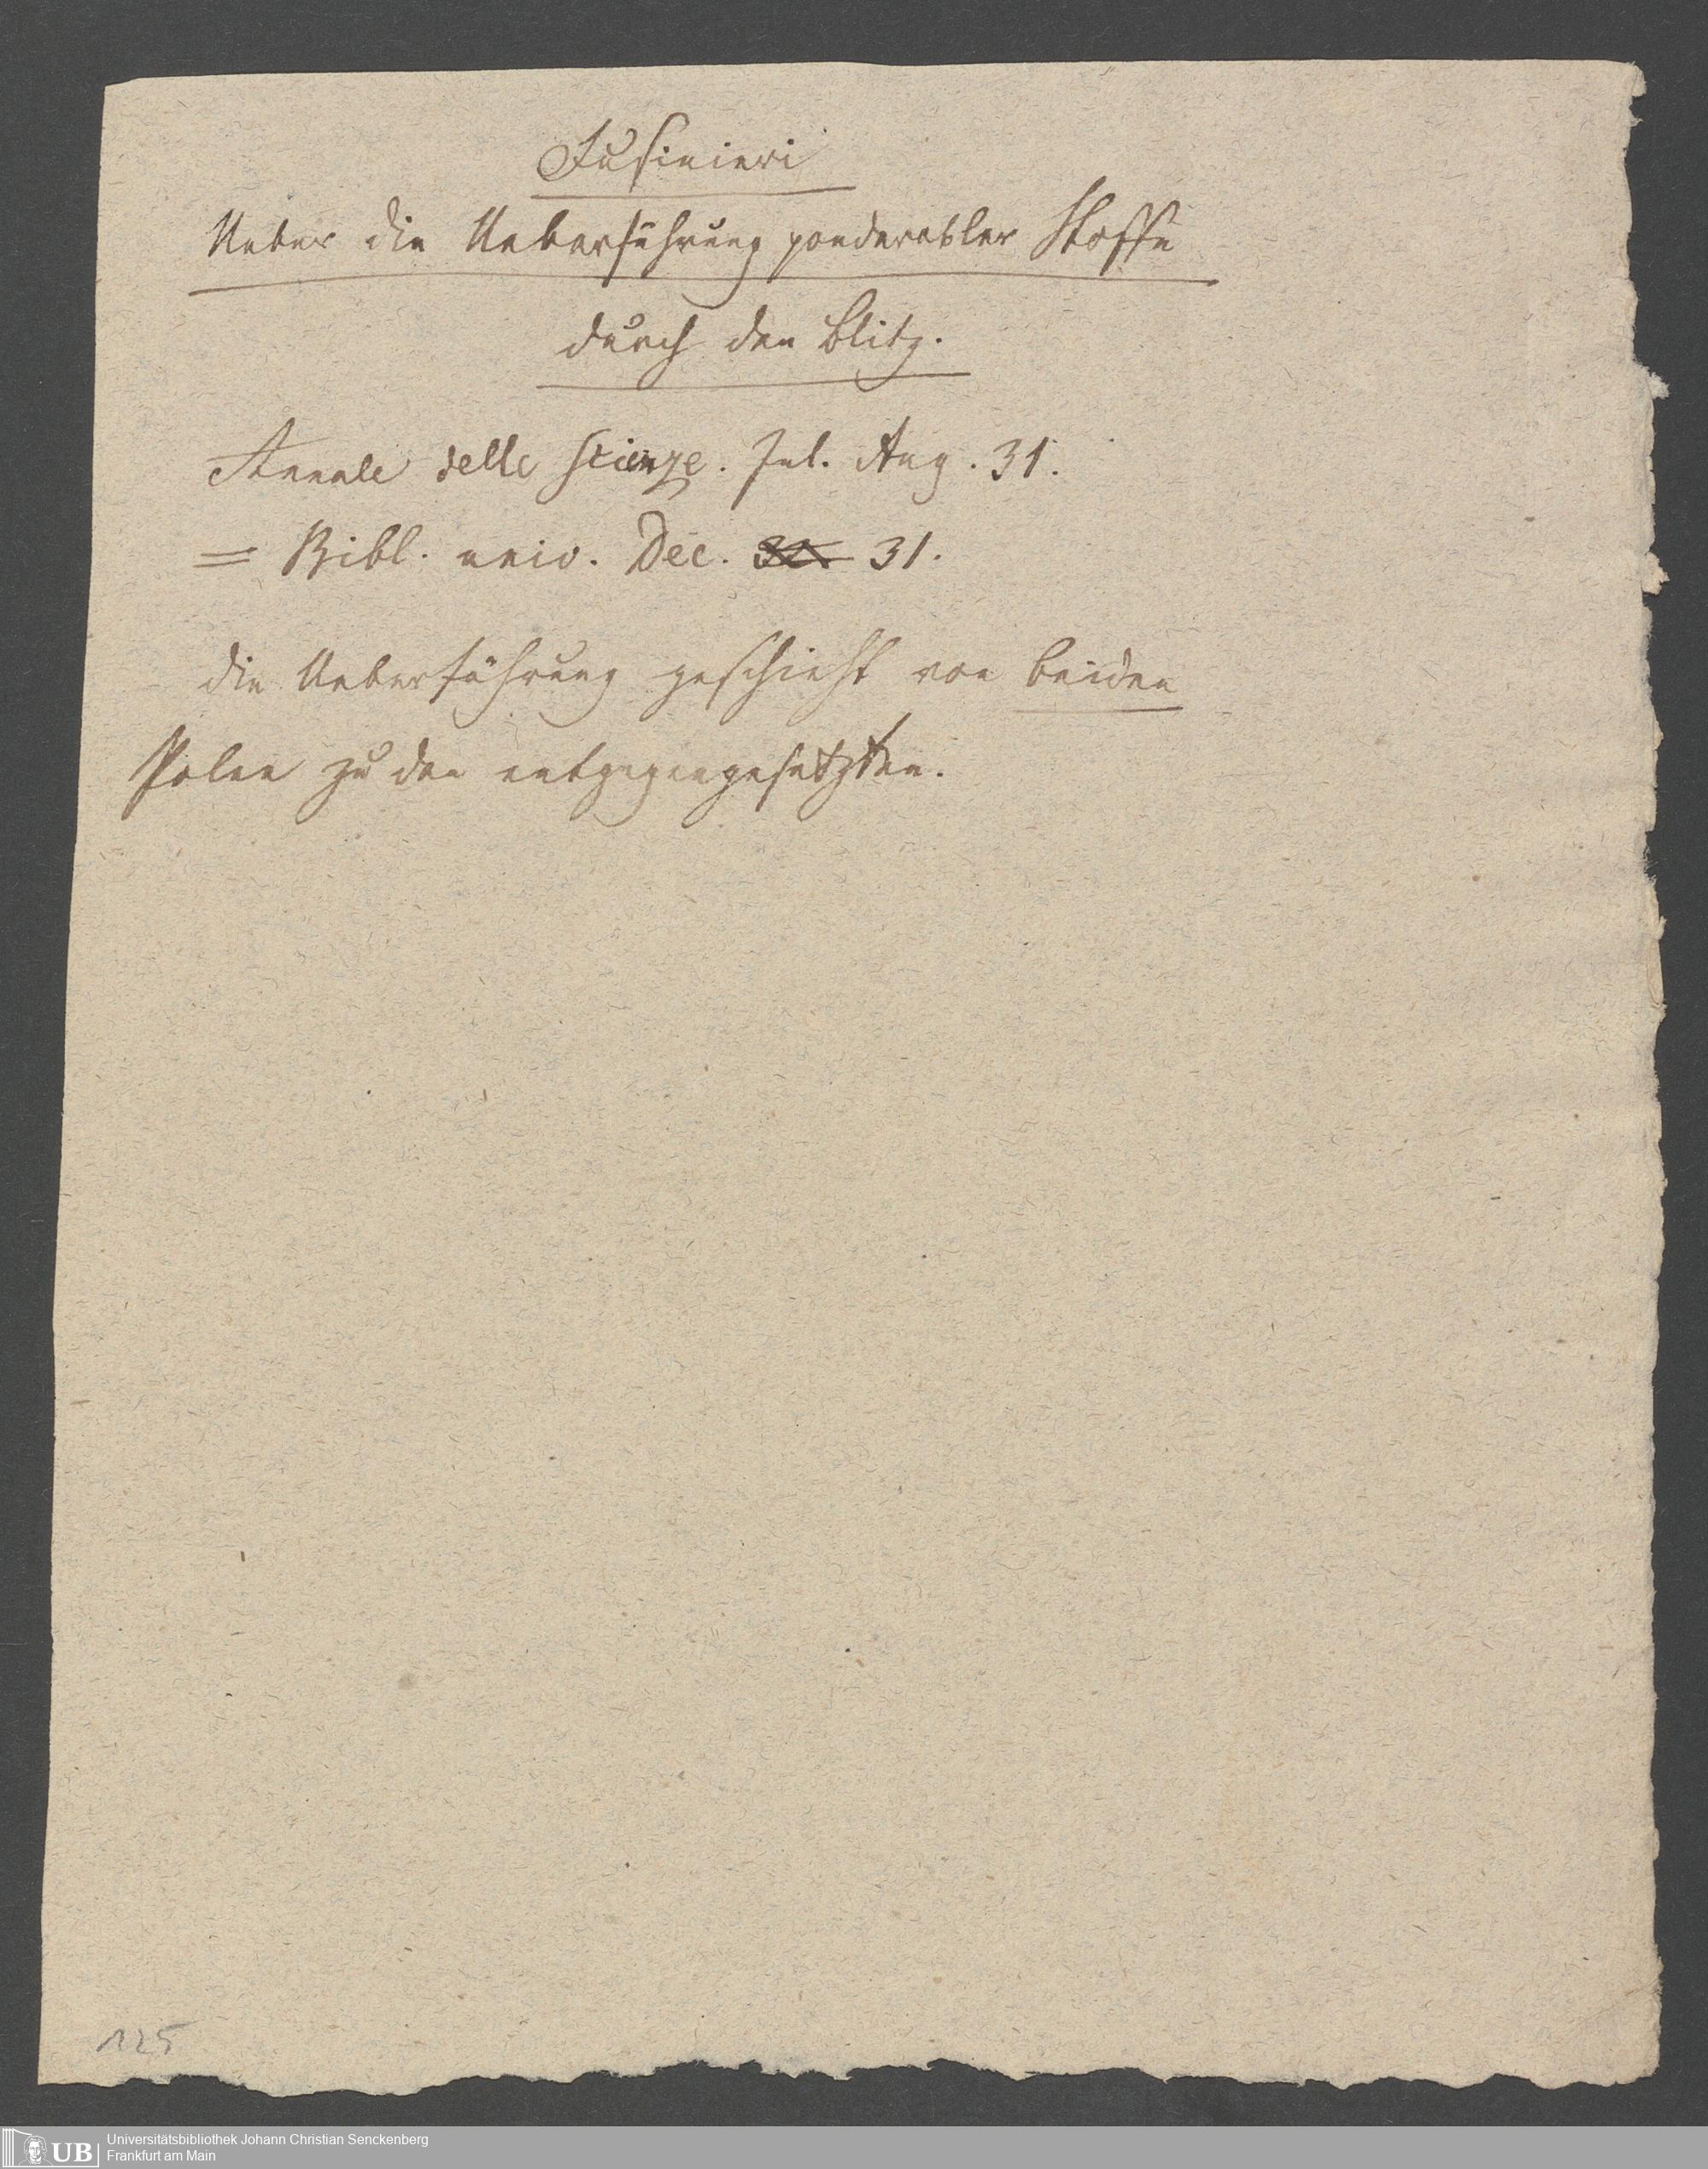 Fusinieri
Ueber die Ueberführung ponderabler Stoffe
durch den Blitz.
Annale delle scienze. Jul. Aug. 31.
= Bibl. univ. Dec. 32. 31.
die Ueberführung geschieht von beiden
Polen zu den entgegengesetzten.
125
UB
Universitätsbibliothek Johann Christian Senckenberg
Frankfurt am Main